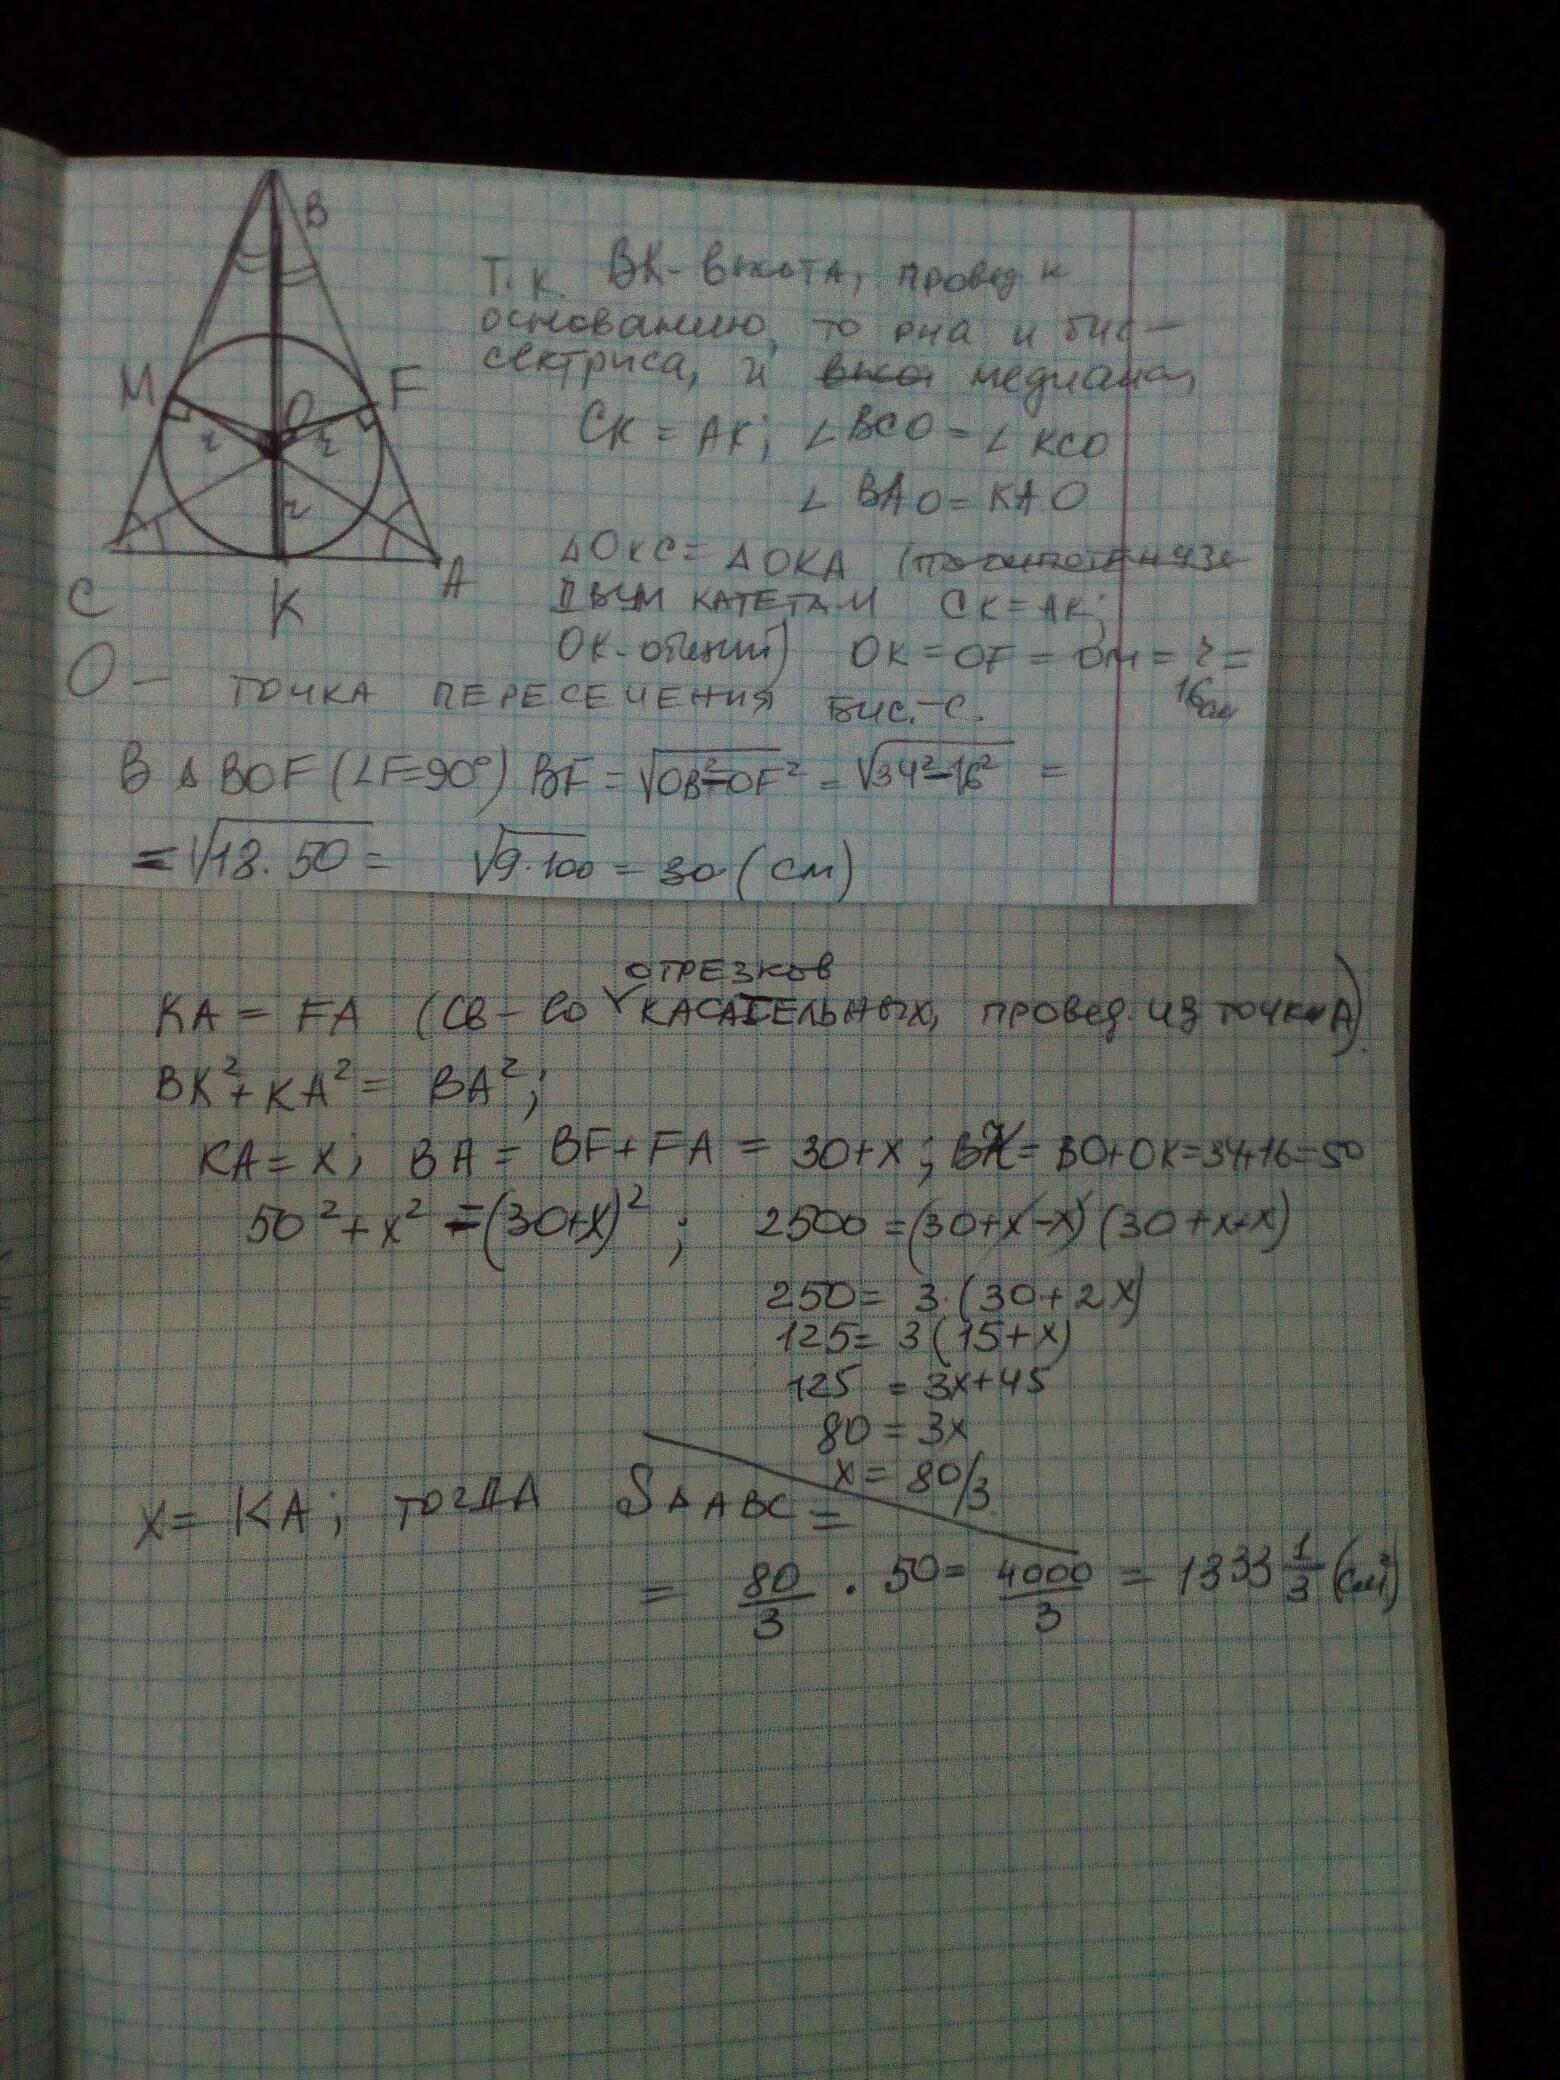 B
M
F
O
r
r
r
C
K
A
Т.к. BK - высота, провед к
основанию, то она и бис-
сектриса, и медиана,
CK = AK; ∠BCO = ∠KCO
∠BAO = KAO
△OKC = △OKA (
двум катетам CK = AK;
OK - общий) OK = OF = OM = r =
16см
O - точка пересечения бис.-с.
В △BOF (∠F=90°) BF = √OB²-OF² = √34²-16² =
= √18·50 = √9·100 = 30 (см)
отрезков
KA = FA (св-во касательных, провед. из точки A)
BK² + KA² = BA²;
KA = x; BA = BF + FA = 30+x; BK = BO+OK=34+16=50
50² + x² = (30+x)²; 2500 = (30+x-x)(30+x+x)
250 = 3·(30+2x)
125 = 3(15+x)
125 = 3x+45
80 = 3x
x = 80/3
x = KA; тогда S△ABC =
= 80/3 · 50 = 4000/3 = 1333 1/3 (см²)